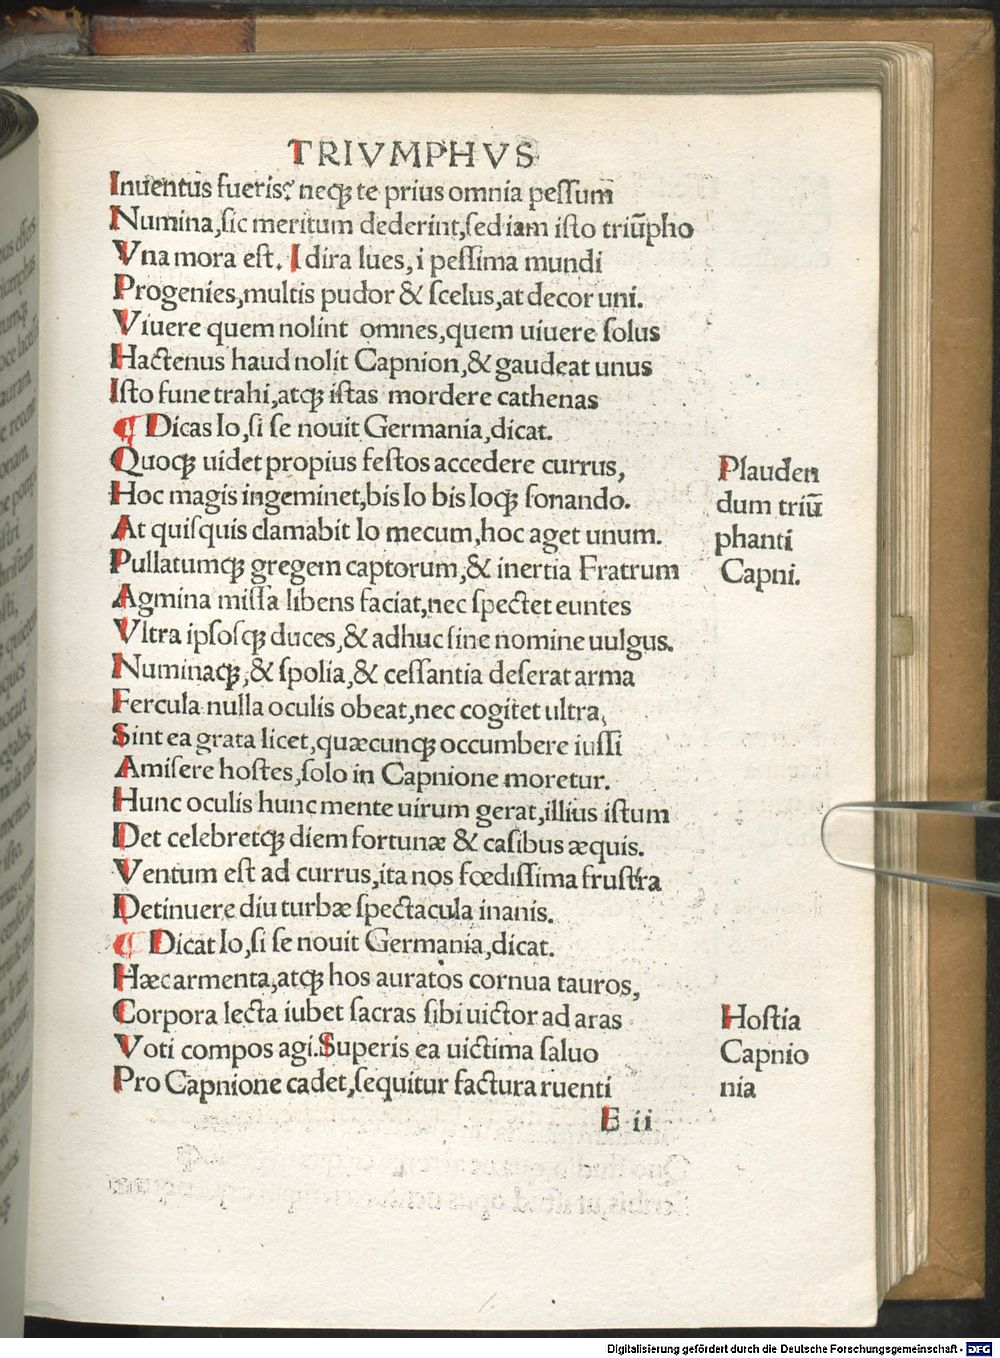 TRIVMPHVS
Inuentus fueris? neqꝫ te prius omnia peſſum̄
Numina,ſic meritum dederint,ſed iam iſto triūpho
Vna mora eſt. I dira lues, i peſſima mundi
Progenies,multis pudor & ſcelus,at decor uni.
Viuere quem nolint omnes,quem uiuere ſolus
Hactenus haud nolit Capnion,& gaudeat unus
Iſto fune trahi,atqꝫ iſtas mordere cathenas
¶ Dicas Io,ſi ſe nouit Germania,dicat.
Quoqꝫ uidet propius feſtos accedere currus,
Hoc magis ingeminet,bis Io bis Ioqꝫ ſonando.
At quiſquis clamabit Io mecum,hoc aget unum.
Pullatumqꝫ gregem captorum,& inertia Fratrum
Agmina miſſa libens faciat,nec ſpectet euntes
Vltra ipſoſqꝫ duces,& adhuc ſine nomine uulgus.
Numinaqꝫ,& ſpolia,& ceſſantia deſerat arma
Fercula nulla oculis obeat,nec cogitet ultra,
Sint ea grata licet,quæcunqꝫ occumbere iuſſi
Amiſere hoſtes,ſolo in Capnione moretur.
Hunc oculis hunc mente uirum gerat,illius iſtum
Det celebretqꝫ diem fortunæ & caſibus æquis.
Ventum eſt ad currus,ita nos fœdiſſima fruſtra
Detinuere diu turbæ ſpectacula inanis.
¶ Dicat Io,ſi ſe nouit Germania,dicat.
Hæc armenta,atqꝫ hos auratos cornua tauros,
Corpora lecta iubet ſacras ſibi uictor ad aras
Voti compos agi.Superis ea uictima ſaluo
Pro Capnione cadet,ſequitur factura ruenti
E ii
Plauden
dum triū
phanti
Capni.
Hoſtia
Capnio
nia
Digitalisierung gefördert durch die Deutsche Forschungsgemeinschaft - DFG